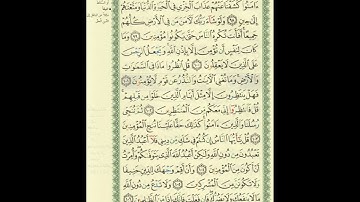 ءَامَنُوا۟ كَشَفْنَا عَنْهُمْ عَذَابَ ٱلْخِزْىِ فِى ٱلْحَيَوٰةِ ٱلدُّنْيَا وَمَتَّعْنَٰهُمْ
إِلَىٰ حِينٍ ٩٨ وَلَوْ شَآءَ رَبُّكَ لَءَامَنَ مَن فِى ٱلْأَرْضِ كُلُّهُمْ
جَمِيعًا أَفَأَنتَ تُكْرِهُ ٱلنَّاسَ حَتَّىٰ يَكُونُوا۟ مُؤْمِنِينَ ٩٩ وَمَا
كَانَ لِنَفْسٍ أَن تُؤْمِنَ إِلَّا بِإِذْنِ ٱللَّهِ وَيَجْعَلُ ٱلرِّجْسَ
عَلَى ٱلَّذِينَ لَا يَعْقِلُونَ ١٠٠ قُلِ ٱنظُرُوا۟ مَاذَا فِى ٱلسَّمَٰوَٰتِ
وَٱلْأَرْضِ وَمَا تُغْنِى ٱلْءَايَٰتُ وَٱلنُّذُرُ عَن قَوْمٍ لَّا يُؤْمِنُونَ ١٠١
فَهَلْ يَنتَظِرُونَ إِلَّا مِثْلَ أَيَّامِ ٱلَّذِينَ خَلَوْا۟ مِن قَبْلِهِمْ
قُلْ فَٱنتَظِرُوٓا۟ إِنِّى مَعَكُم مِّنَ ٱلْمُنتَظِرِينَ ١٠٢ ثُمَّ نُنَجِّى
رُسُلَنَا وَٱلَّذِينَ ءَامَنُوا۟ كَذَٰلِكَ حَقًّا عَلَيْنَا نُنجِ ٱلْمُؤْمِنِينَ ١٠٣
قُلْ يَٰٓأَيُّهَا ٱلنَّاسُ إِن كُنتُمْ فِى شَكٍّ مِّن دِينِى فَلَآ أَعْبُدُ ٱلَّذِينَ
تَعْبُدُونَ مِن دُونِ ٱللَّهِ وَلَٰكِنْ أَعْبُدُ ٱللَّهَ ٱلَّذِى يَتَوَفَّىٰكُمْ وَأُمِرْتُ
أَنْ أَكُونَ مِنَ ٱلْمُؤْمِنِينَ ١٠٤ وَأَنْ أَقِمْ وَجْهَكَ لِلدِّينِ حَنِيفًا
وَلَا تَكُونَنَّ مِنَ ٱلْمُشْرِكِينَ ١٠٥ وَلَا تَدْعُ مِن دُونِ ٱللَّهِ
مَا لَا يَنفَعُكَ وَلَا يَضُرُّكَ فَإِن فَعَلْتَ فَإِنَّكَ إِذًا مِّنَ